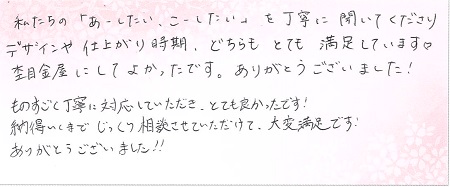 私たちの「あーしたい、こーしたい」を丁寧に聞いてくださり
デザインや仕上がり時期、どちらもとても満足しています♡
杢目金屋にしてよかったです。ありがとうございました!
ものすごく丁寧に対応していただき、とても良かったです!
納得いくまでじっくり相談させていただけて、大変満足です!
ありがとうございました!!